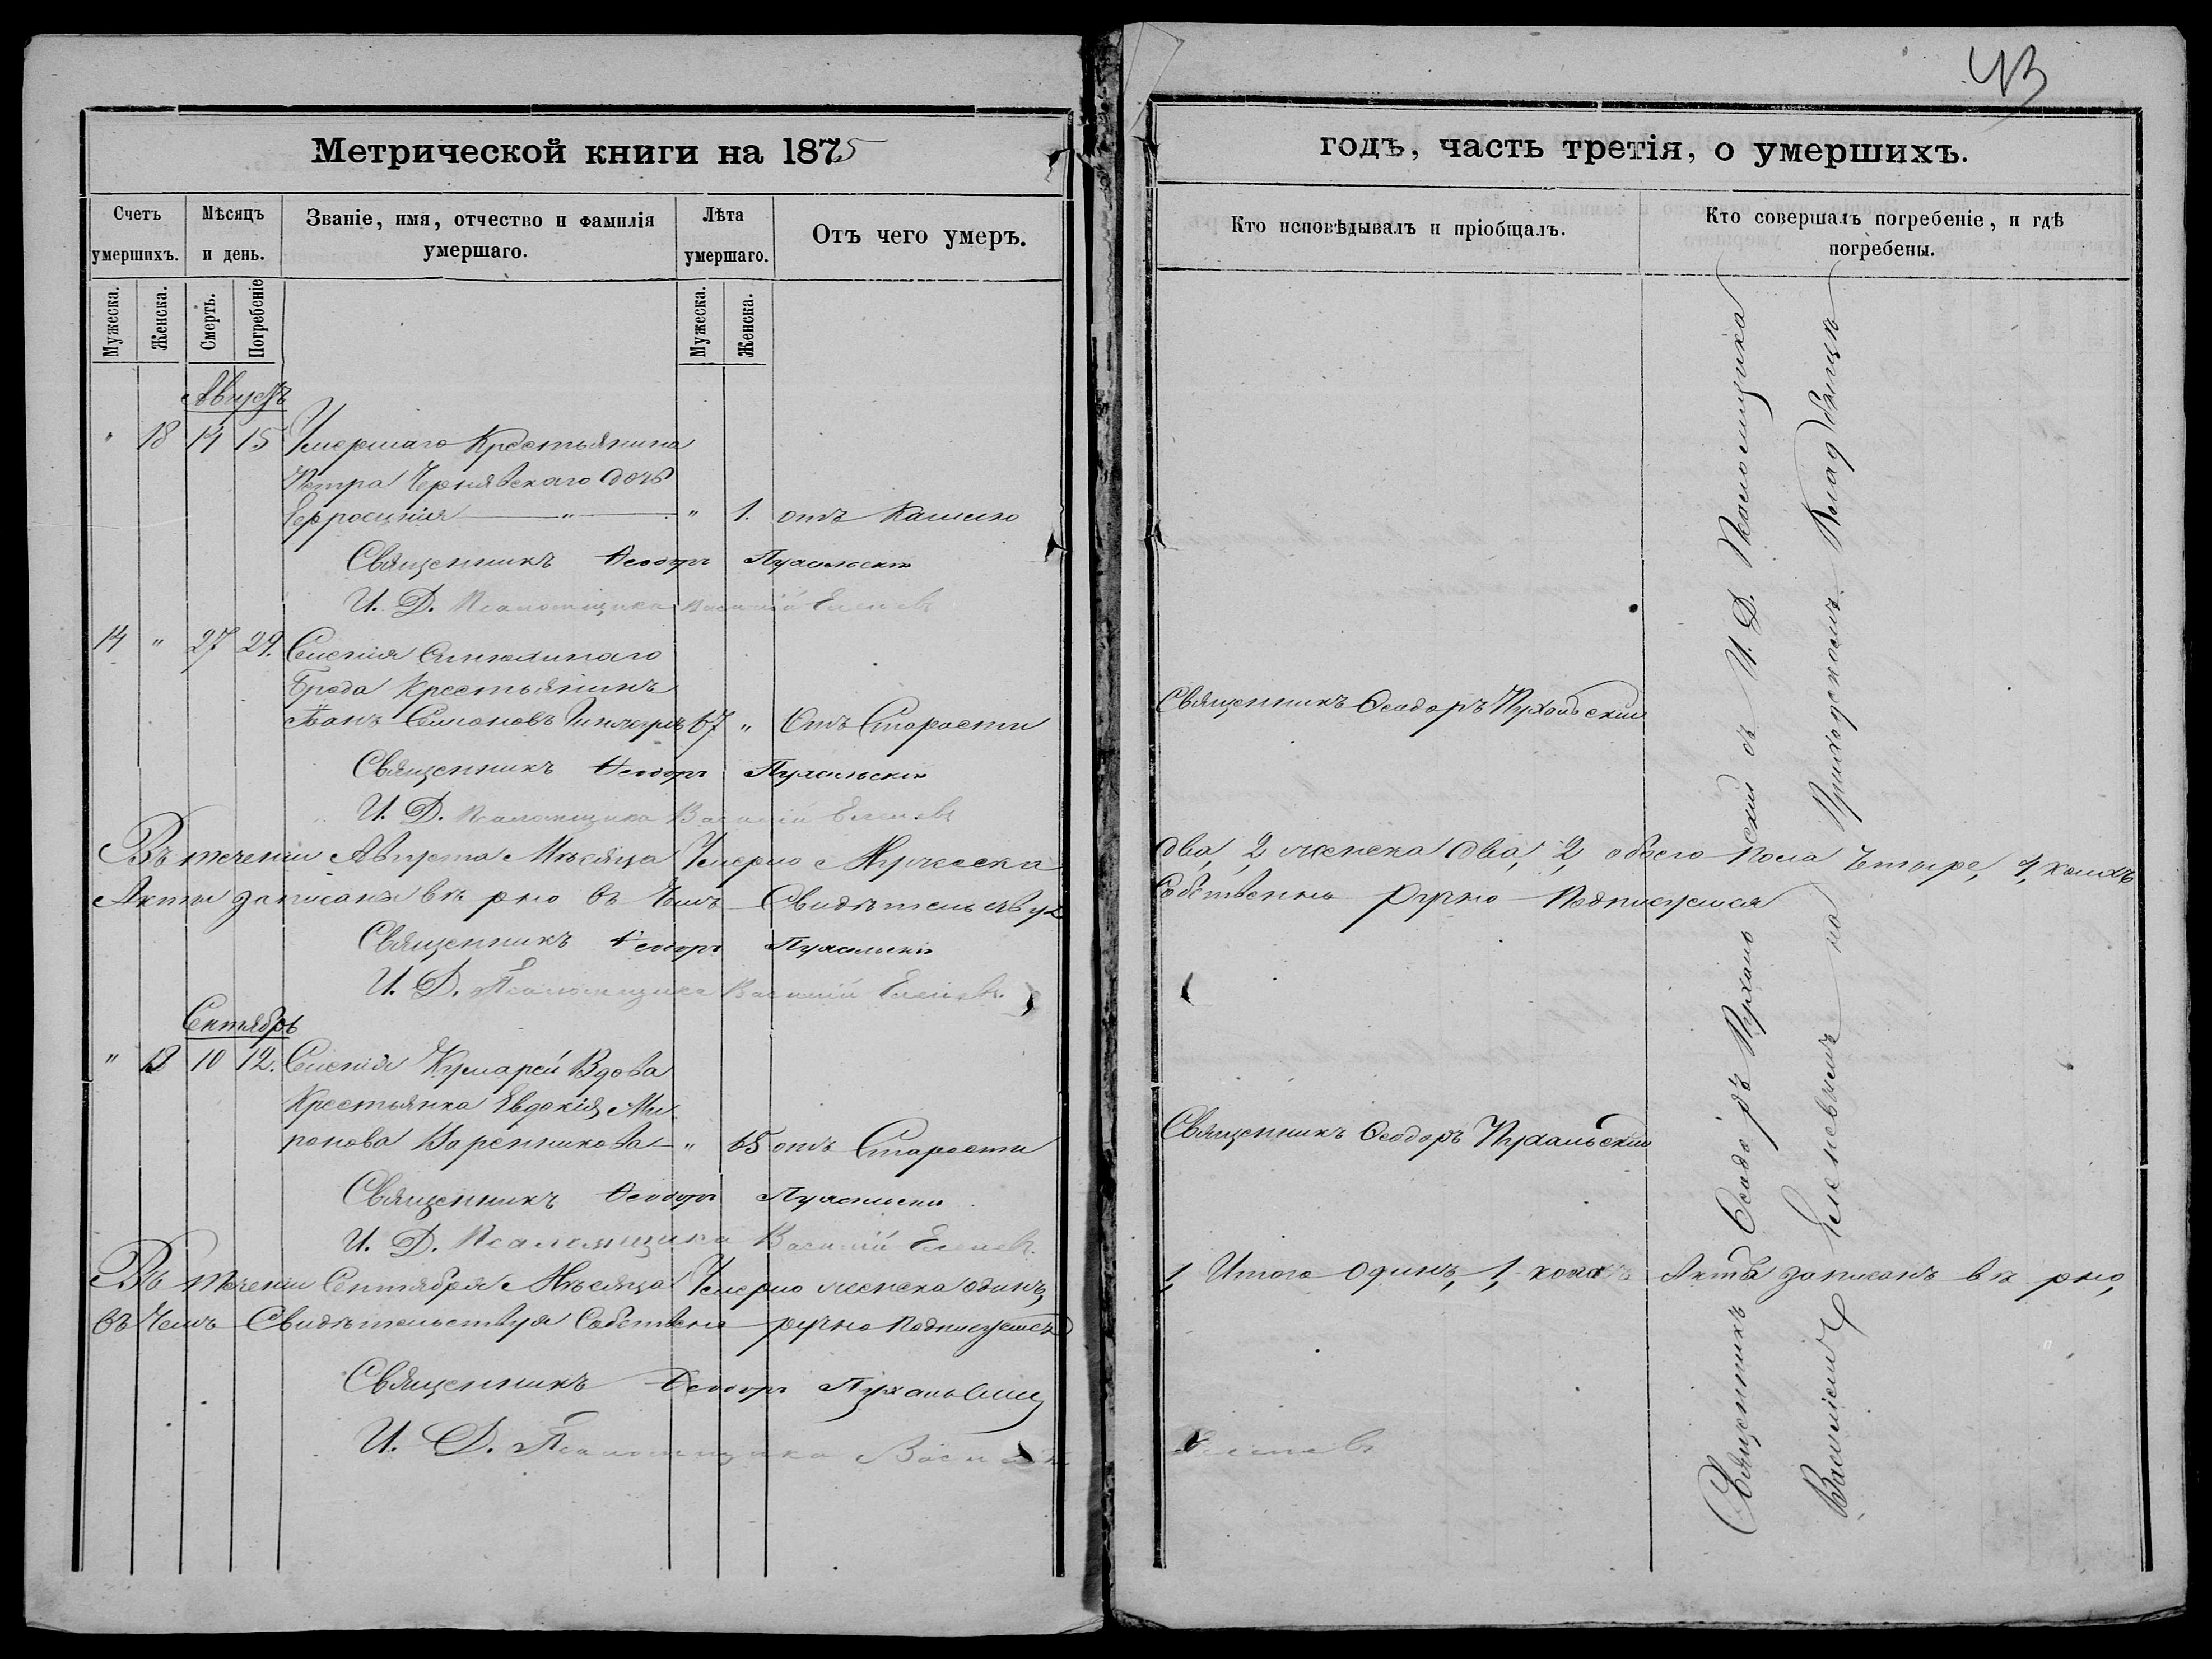 43
Метрической книги на 1875
годъ, часть третія, о умершихъ.
Счетъ умершихъ.
Мѣсяцъ и день.
Званіе, имя, отчество и фамилія умершаго.
Лѣта умершаго.
Отъ чего умеръ.
Кто исповѣдывалъ и пріобщалъ.
Кто совершалъ погребеніе, и гдѣ погребены.
Мужеска.
Женска.
Смерть.
Погребеніе
Мужеска.
Женска.
Августъ
" 18 14 15 Умершаго Крестьянина
Петра Чернявскаго дочь
" 1. отъ Кашлю
Священникъ Ѳеодоръ Пухальскій
И. Д. Псаломщика Василій Еленевъ
14 " 27 29. Селенія
Брода Крестьянинъ
Іванъ Симоновъ 67 " Отъ Старости
Священникъ Ѳеодоръ Пухальскій
Священникъ Ѳеодоръ Пухальскій
И. Д. Псаломщика Василій Еленевъ
Въ теченіи Августа Мѣсяца Умерло Мужеска
два, 2 женска два, 2, обоего пола четыре, 4, коихъ
Акты записаны вѣрно въ чемъ Свидѣтельствуя
Собственно Ручно Подписуемся
Священникъ Ѳеодоръ Пухальскій
И. Д. Псаломщика Василій Еленевъ.
Сентябрь
" 10 12. Селенія Кумарей Вдова
Крестьянка Евдокія Ми
ронова Вореникова " 65 отъ Старости
Священникъ Ѳеодоръ Пухальскій
Священникъ Ѳеодоръ Пухальскій
И. Д. Псаломщика Василій Еленевъ.
Въ теченіи Сентября Мѣсяца Умерло женска одинъ,
1, Итого Одинъ, 1, коего Актъ записанъ вѣрно,
въ чемъ Свидѣтельствуя Собственно ручно подписуемся
Священникъ Ѳеодоръ Пухальскій
И. Д. Псаломщика Василій
Еленевъ
Священникъ Ѳеодоръ Пухальскій съ И. Д. Псаломщика
Василіемъ Еленевымъ на Приходскомъ Кладбищѣ